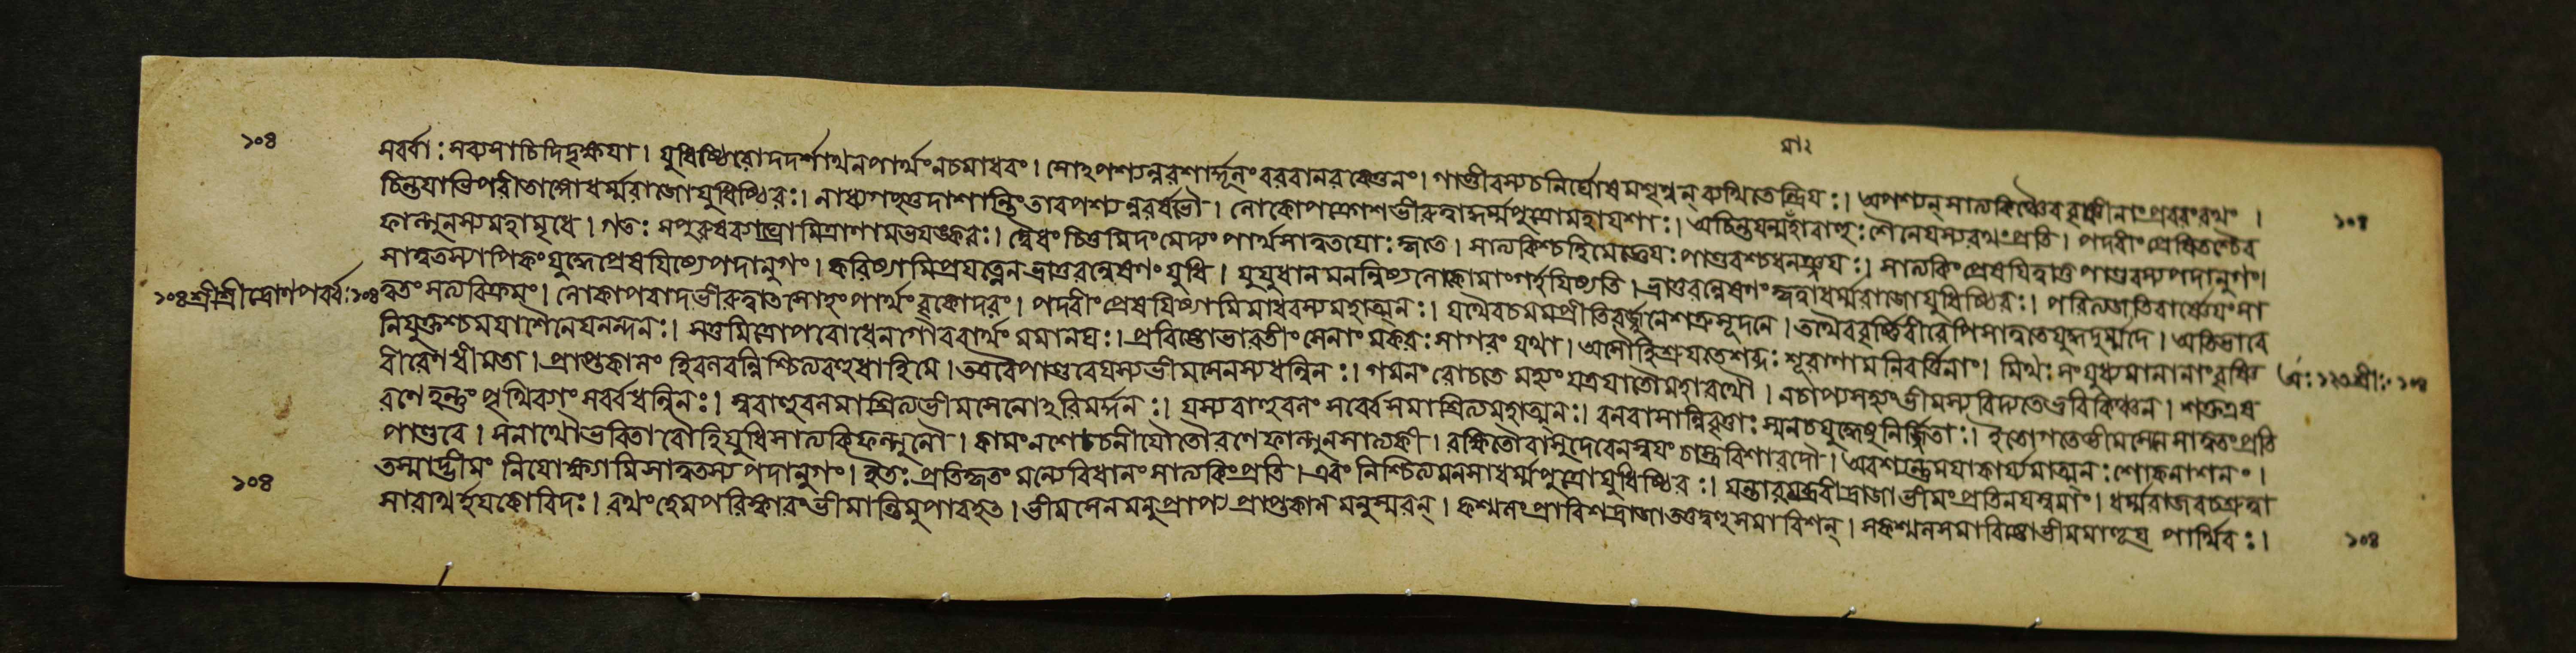 ১০৪
সর্বাঃ সব্যসাচিদিদৃক্ষয়া। যুধিষ্ঠিরোদদর্শাথনপার্থংনচমাধবং। সোঽপশ্যন্নরশার্দ্দূলং বরবানরকেতনং। গাণ্ডীবস্যচনির্ঘোষমশৃণ্বন্ ব্যথিতেন্দ্রিয়ঃ। অপশ্যন্ সাত্যকিঞ্চৈববৃষ্ণীনাংপ্রবরংরথং।
চিন্তয়াভিপরীতাঙ্গোধর্ম্মরাজোযুধিষ্ঠিরঃ। নাধ্যগচ্ছত্তদাশান্তিংতাবপশ্যন্নরর্ষভৌ। লোকোপক্রোশভীরুত্বাদ্ধর্ম্মপুত্রোমহাযশাঃ। অচিন্তয়ন্মহাঁবাহুঃ শৈনেয়স্যরথংপ্রতি। পদবীংপ্রেষিতশ্চৈব ১০৪
ফাল্গুনস্যমহামৃধে। গতঃ মিত্রাণামভয়ঙ্করঃ। দ্বৈধং চিত্তমিদংমেদ্যং পার্থসাত্বতয়োঃ কৃতে। সাত্যকিশ্চহিমেজ্ঞেয়ঃ পাণ্ডবশ্চধনঞ্জয়ঃ। সাত্যকিং প্রেষয়িত্বাতুপাণ্ডবস্যপদানুগং।
সাত্বতস্যাপিকংযুদ্ধেপ্রেষয়িষ্যেপদানুগং। করিষ্যামিপ্রযত্নেনভ্রাতুরন্বেষণং যুধি। যুযুধানমনন্বিষ্যলোকোমাংগর্হয়িষ্যতি। ভ্রাতুরন্বেষণংকৃত্বাধর্ম্মরাজোযুধিষ্ঠিরঃ। পরিত্যজতিবার্ষ্ণেয়ংসা
১০৪শ্রীশ্রীদ্রোণপর্ব্বঃ১০৪ ত্বতং সত্যবিক্রমং। লোকাপবাদভীরুত্বাতসোহংপার্থংবৃকোদরং। পদবীংপ্রেষয়িষ্যামিমাধবস্যমহাত্মনঃ। যথৈবচমমপ্রীতিরর্জ্জুনেশত্রুসূদনে। তথৈববৃষ্ণিবীরেপিসাত্বতেযুদ্ধদুর্ম্মদে। অতিভারে
নিযুক্তশ্চময়াশৈনেয়নন্দনঃ। সতুমিত্রোপরোধেনগৌরবার্থং মমানঘঃ। প্রবিষ্টোভারতীংসেনাংমকরঃ সাগরংযথা। অসৌহিশ্রূয়তেশব্দঃ শূরাণামনিবর্ত্তিনাং। মিথঃ সংযুধ্যমানানাংবৃষ্ণি
বীরেণধীমতা। প্রাপ্তকালং হিবলবন্নিশ্চিত্যবহুধাহিমে। তত্রৈবপাণ্ডবেয়স্যভীমসেনস্যধন্বিনঃ। গমনংরোচতে মহ্যংযত্রযাতৌমহারথৌ। নচাপ্যসহ্যংভীমস্যবিদ্যতেভুবিকিঞ্চন। শক্তএষ
রণেহন্তুংপৃথিব্যাংসর্ব্বধন্বিনঃ। স্ববাহুবলমাশ্রিত্যভীমসেনোঽরিমর্দ্দনঃ। যস্যবাহুবলংসর্ব্বেসমাশ্রিত্যমহাত্মনঃ। বনবাসান্নিবৃত্তাঃ স্মনচযুদ্ধেষুনির্জ্জিতাঃ। ইতোগতেভীমসেনেসাত্বতংপ্রতি
পাণ্ডবে। সনাথৌভবিতারৌহিযুধিসাত্যকিফল্গুনৌ। কামংনশোচনীয়ৌতৌরণেফাল্গুনসাত্যকী। রক্ষিতৌবাসুদেবেনস্বয়ংচাস্ত্রবিশারদৌ। অবশ্যন্তুময়াকার্য্যমাত্মনঃ শোকনাশনং।
তস্মাদ্ভীমং নিযোক্ষ্যামিসাত্বতস্যপদানুগং। ইতঃ প্রতিকৃতং মন্যেবিধানংসাত্যকিংপ্রতি। এবংনিশ্চিত্যমনসাধর্ম্মপুত্রোযুধিষ্ঠিরঃ। যন্তারমব্রবীদ্রাজাভীমংপ্রতিনয়স্বমাং। ধর্ম্মরাজবচশ্রুত্বা
১০৪ সারথির্হয়কোবিদঃ। রথংহেমপরিষ্কারংভীমান্তিমুপাবহৎ। ভীমসেনমনুপ্রাপ্য প্রাপ্তকালমনুস্মরন্। কশ্মলংপ্রাবিশদ্রাজাতদ্বহুসমাবিশন্। সকশ্মলসমাবিষ্টোভীমমাহূয় পার্থিবঃ।
১০৪